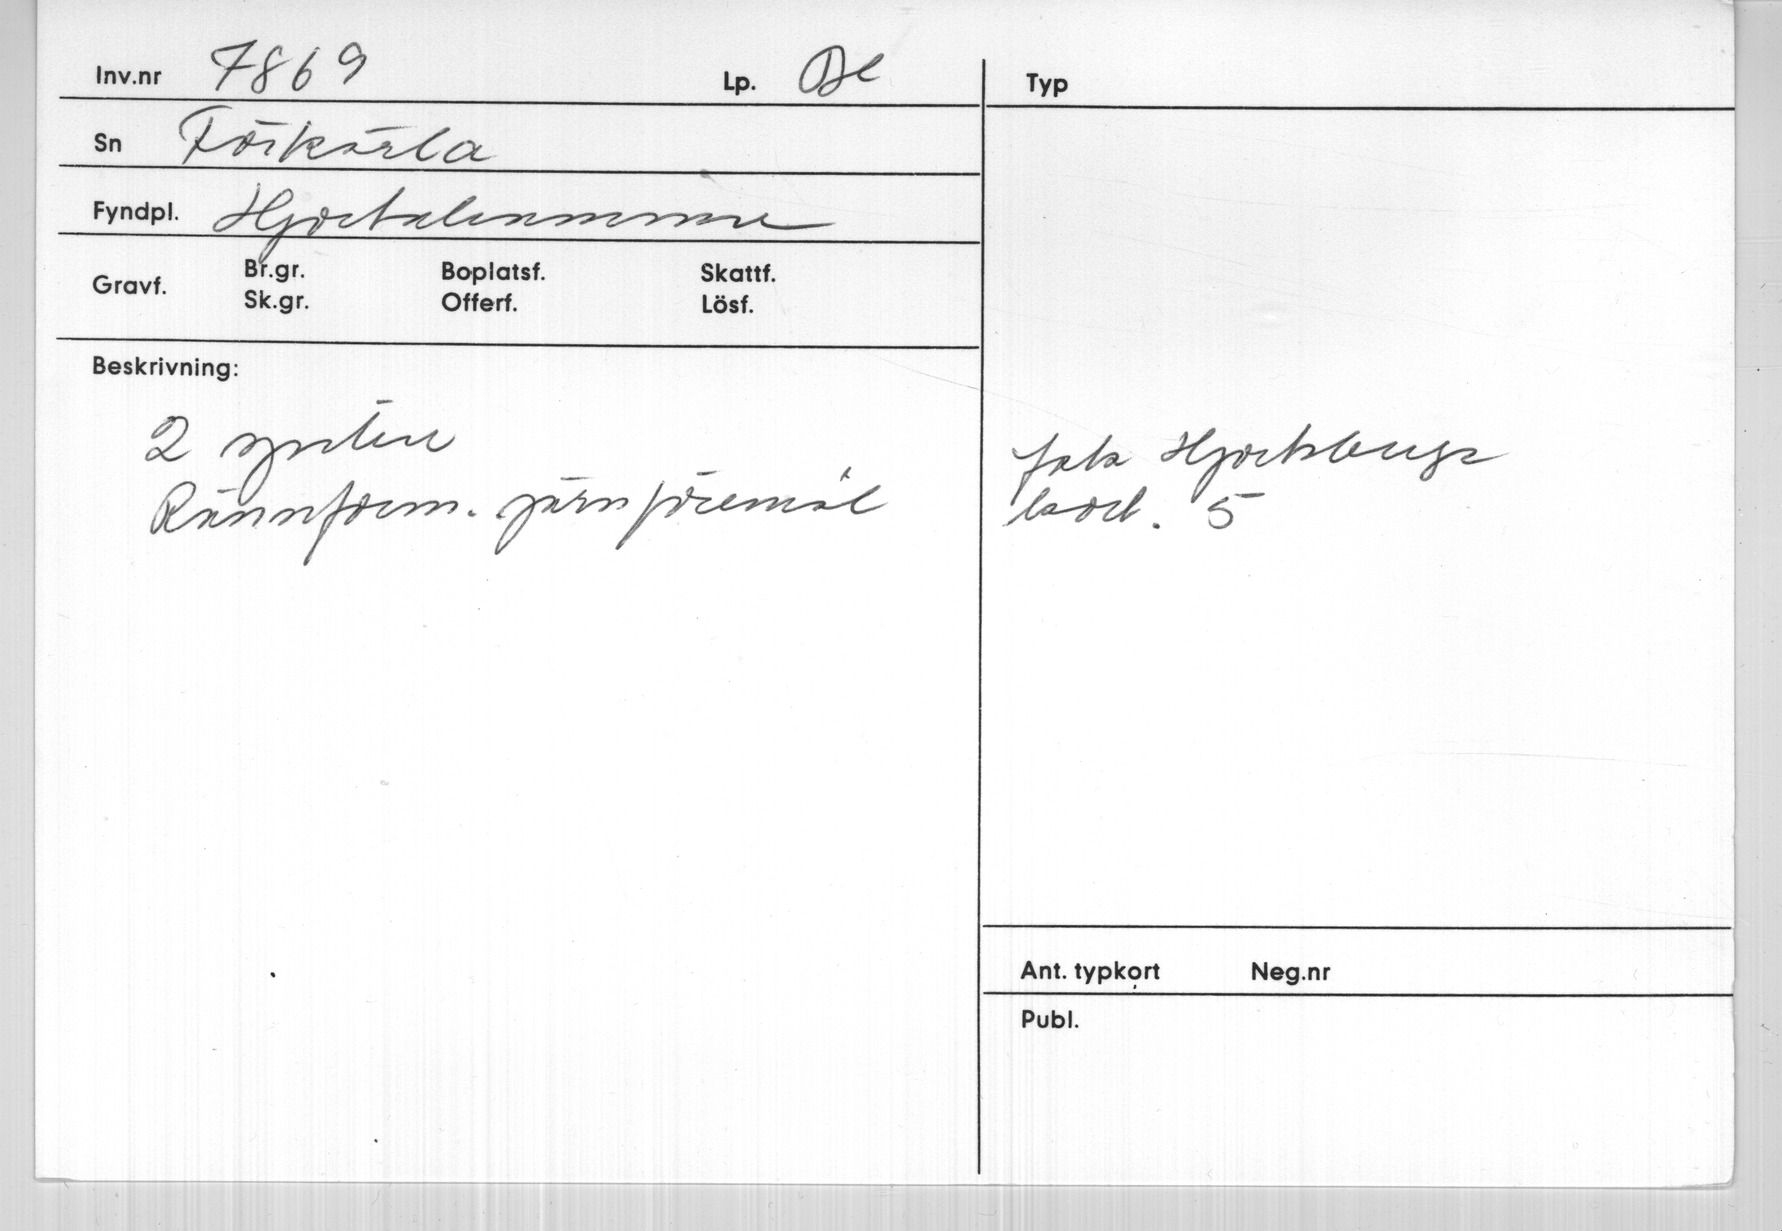 Inv.nr 7869 Lp. Bl
Sn Förkärla
Fyndpl. Hjortahammar
Gravf. Br.gr. Boplatsf. Skattf.
Sk.gr. Offerf. Lösf.
Beskrivning:
2 synten
Rännform. järnföremål
Typ
foto Hjortsberg
kort. 5
Ant. typkort Neg.nr
Publ.